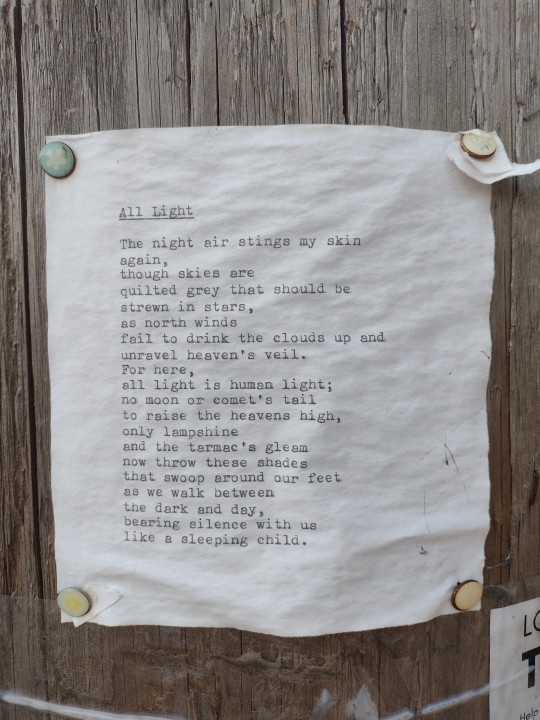 All Light
The night air stings my skin
again,
though skies are
quilted grey that should be
strewn in stars,
as north winds
fail to drink the clouds up and
unravel heaven's veil.
For here,
all light is human light;
no moon or comet's tail
to raise the heavens high,
only lampshine
and the tarmac's gleam
now throw these shades
that swoop around our feet
as we walk between
the dark and day,
bearing silence with us
like a sleeping child.
Help